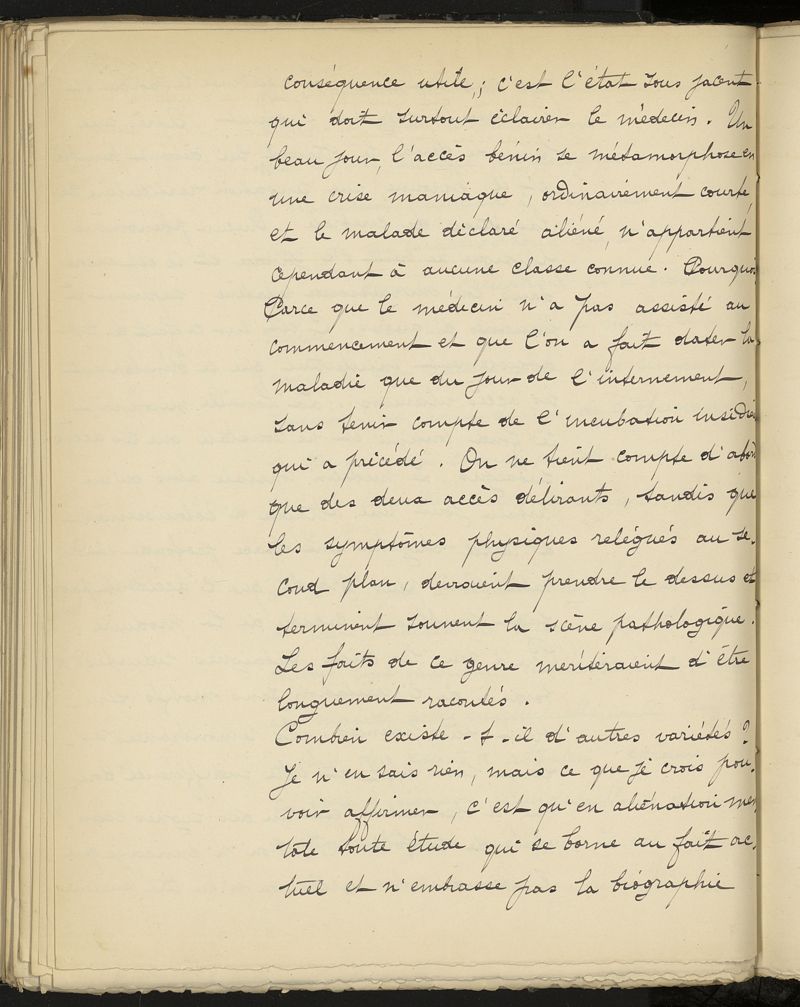 conséquence utile, ; c'est l'état sous jacent
qui doit surtout éclairer le médecin. Un
beau jour, l'accès bénin se métamorphose en
une crise maniaque, ordinairement courte,
et le malade déclaré aliéné, n'appartient
cependant à aucune classe connue. Pourquoi
Parce que le médecin n'a pas assisté au
commencement et que l'on a fait dater la
maladie que du jour de l'internement,
sans tenir compte de l'incubation insidieu
qui a précédé. On ne tient compte d'abord
que des deux accès délirants, tandis que
les symptômes physiques relégués au se-
cond plan, devraient prendre le dessus et
terminent souvent la scène pathologique.
Les faits de ce genre mériteraient d'être
longuement racontés.
Combien existe-t-il d'autres variétés ?
Je n'en sais rien, mais ce que je crois pou-
voir affirmer, c'est qu'en aliénation men
tale toute étude qui se borne au fait ac-
tuel et n'embrasse pas la biographie